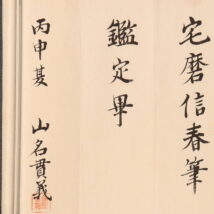 宅磨信春筆
鑑定畢
丙申夏
山名貫義